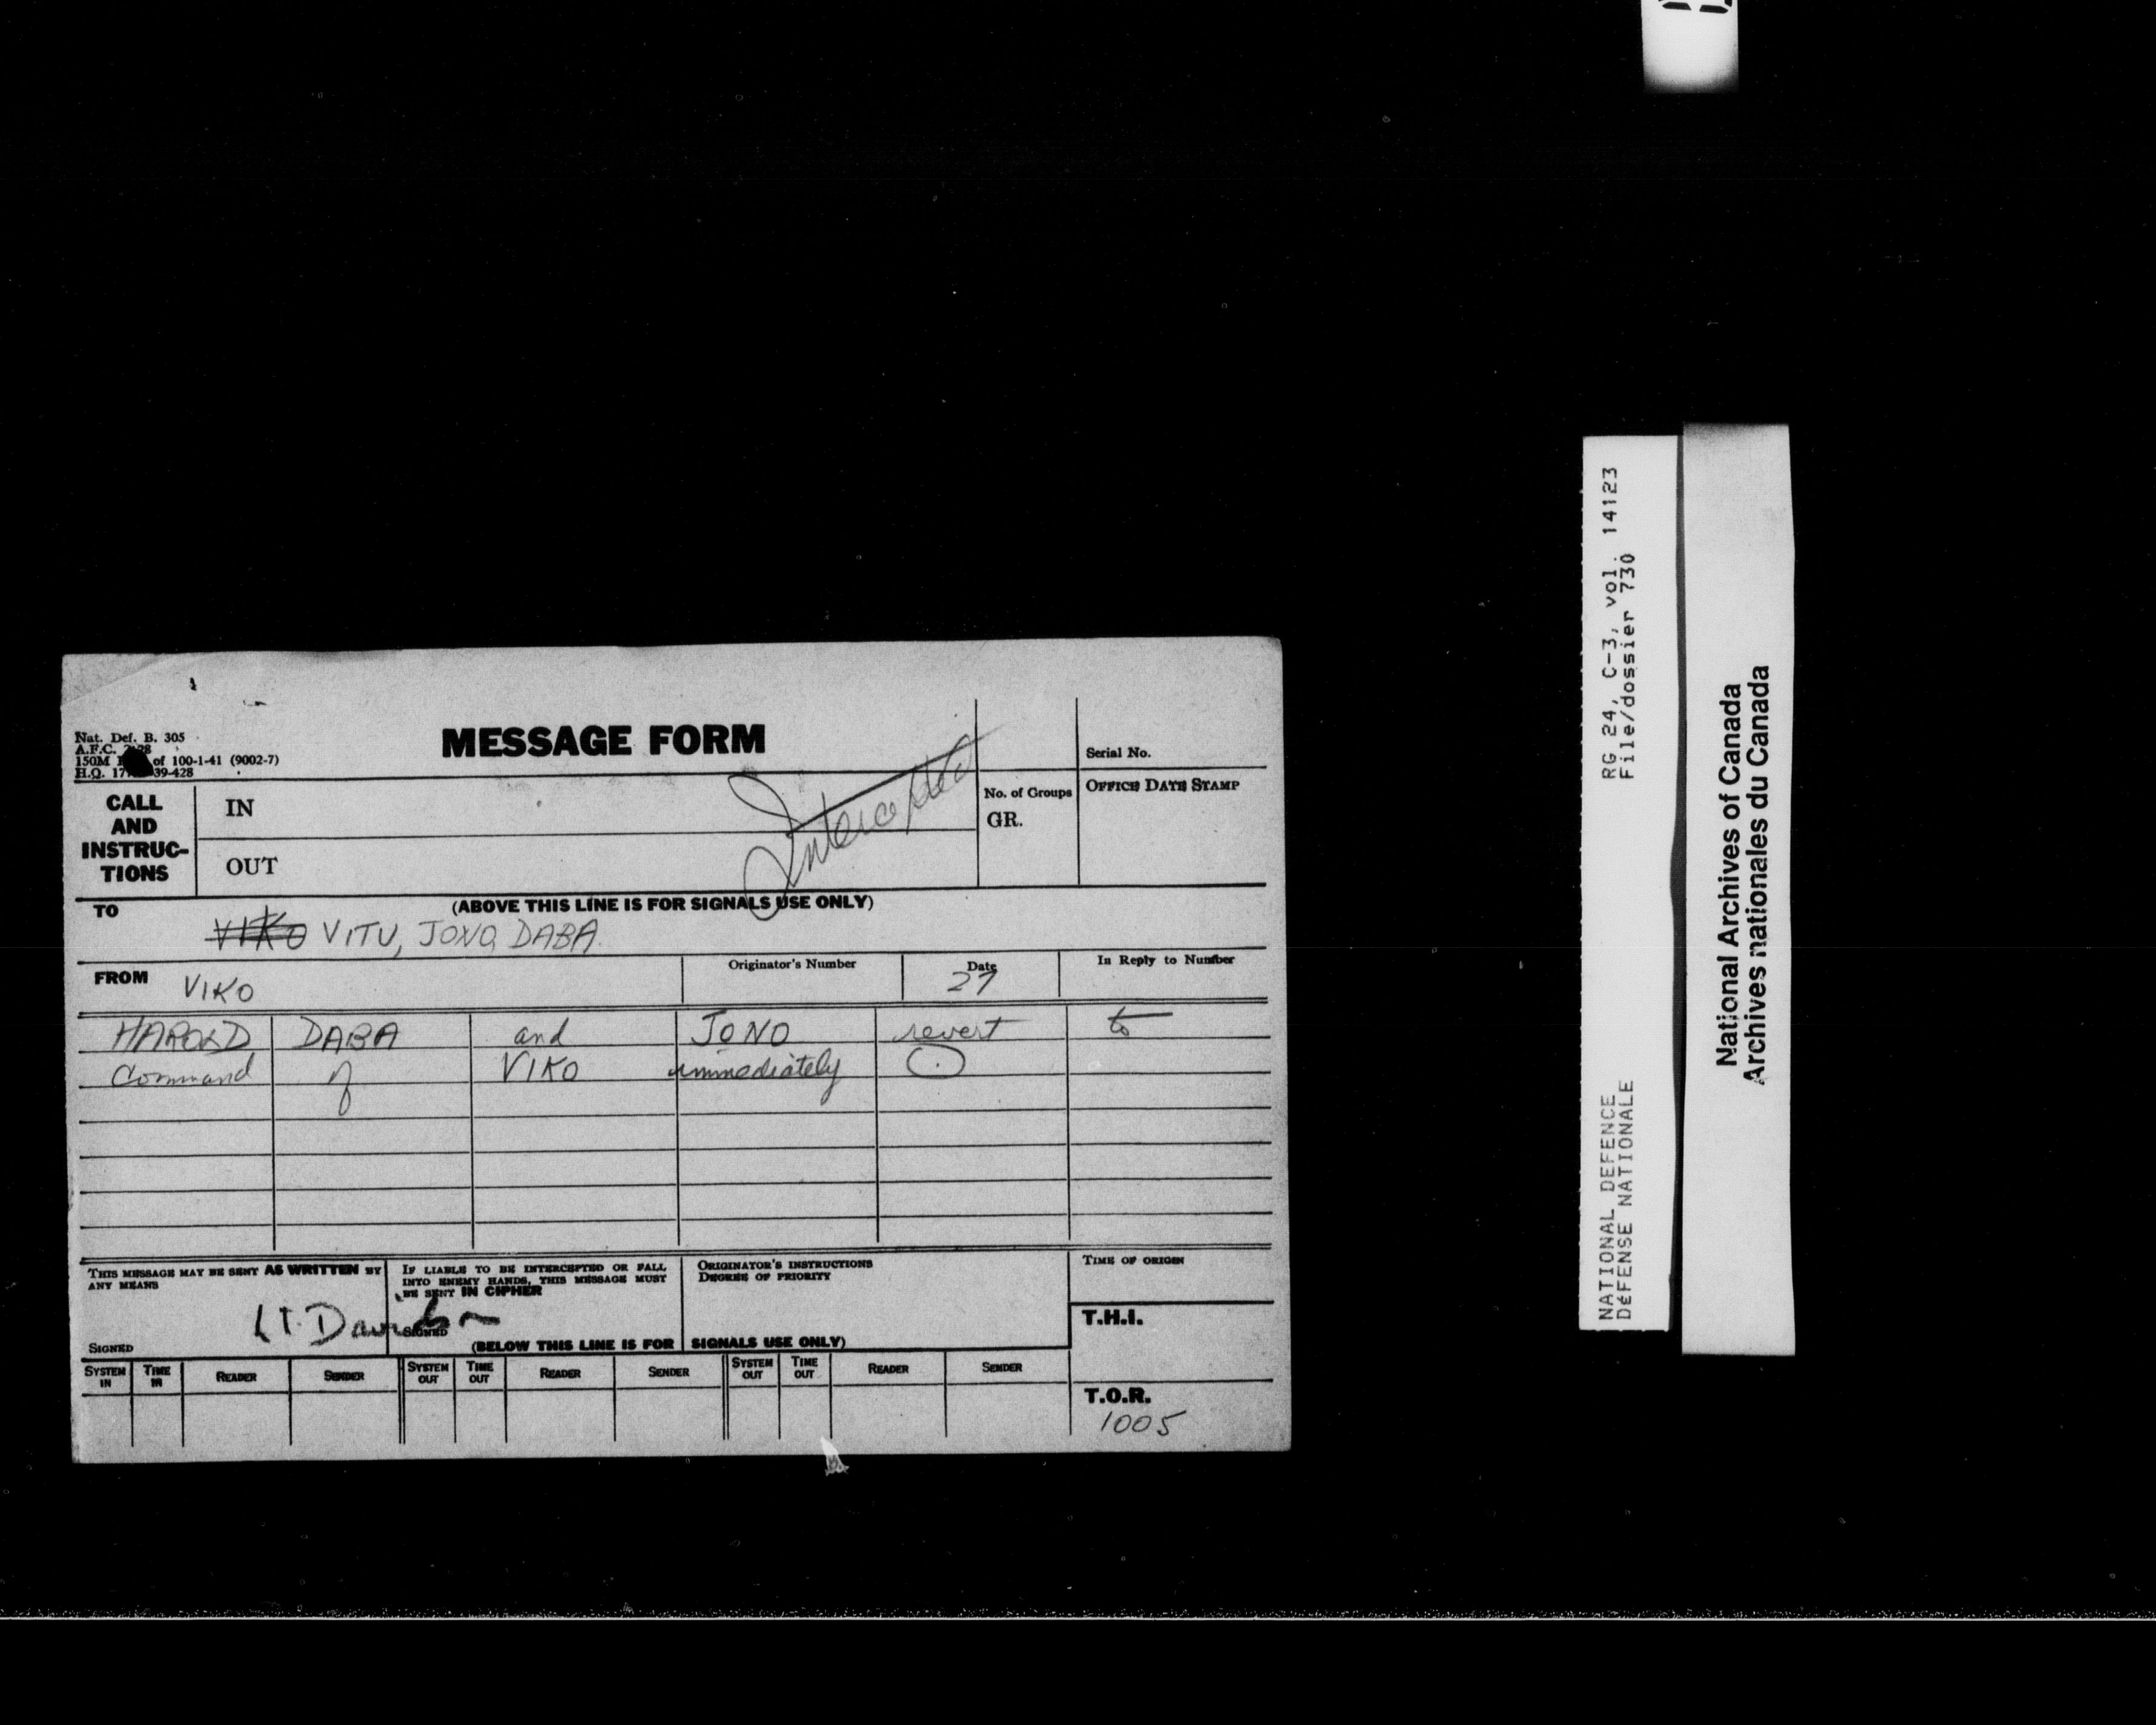 MESSAGE FORM
Nat. Def. B. 305
A.F.C. 2128
150M of 100-1-41 (9002-7)
H.Q. 17 39-428
Serial No.
CALL AND INSTRUC-TIONS
IN
OUT
Intercepted
No. of Groups
GR.
OFFICE DATE STAMP
(ABOVE THIS LINE IS FOR SIGNALS USE ONLY)
TO
VIKO VITU, JONO, DABA.
FROM VIKO
Originator's Number
Date
27
In Reply to Number
HAROLD DABA and JONO revert to
Command of VIKO immediately
THIS MESSAGE MAY BE SENT AS WRITTEN BY
ANY MEANS
IF LIABLE TO BE INTERCEPTED OR FALL
INTO ENEMY HANDS, THIS MESSAGE MUST
BE SENT IN CIPHER
ORIGINATOR'S INSTRUCTIONS
DEGREE OF PRIORITY
TIME OF ORIGIN
T.H.I.
Lt. Davidson
SIGNED
SIGNED
(BELOW THIS LINE IS FOR SIGNALS USE ONLY)
SYSTEM IN TIME IN READER SENDER SYSTEM OUT TIME OUT READER SENDER SYSTEM OUT TIME OUT READER SENDER
T.O.R.
1005
RG 24, C-3, vol. 14123
File/dossier 730
NATIONAL DEFENCE
DéFENSE NATIONALE
National Archives of Canada
Archives nationales du Canada